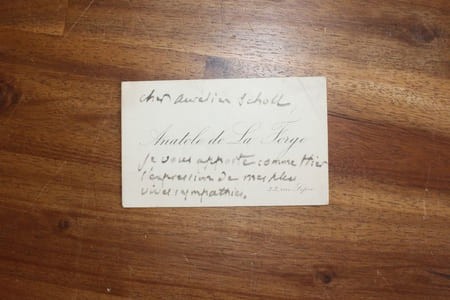 cher Aurélien Scholl
Anatole de La Forge
je vous apporte comme hier
l'expression de mes plus
vives sympathies.